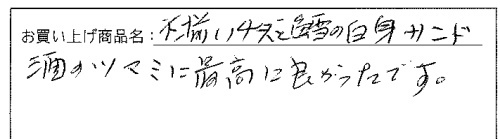 お買い上げ商品名:不揃いチーズと鱈の白身サンド
酒のツマミに最高に良かったです。